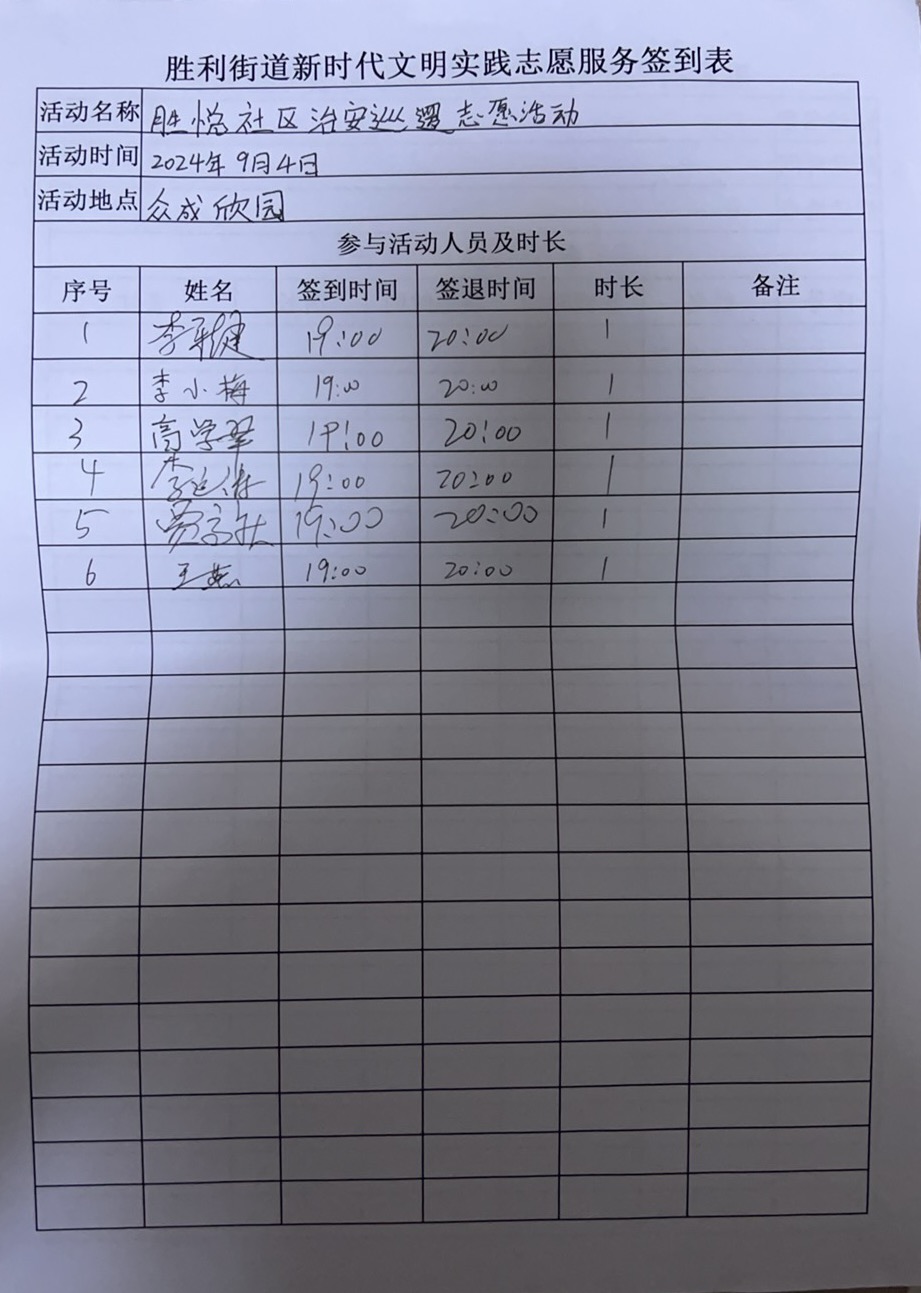 胜利街道新时代文明实践志愿服务签到表
活动名称 胜悦社区治安巡逻志愿活动
活动时间 2024年9月4日
活动地点 众成欣园
参与活动人员及时长
序号 姓名 签到时间 签退时间 时长 备注
1 李 19:00 20:00 1
2 李小梅 19:00 20:00 1
3 高学翠 19:00 20:00 1
4 李 19:00 20:00 1
5 19:00 20:00 1
6 王燕 19:00 20:00 1